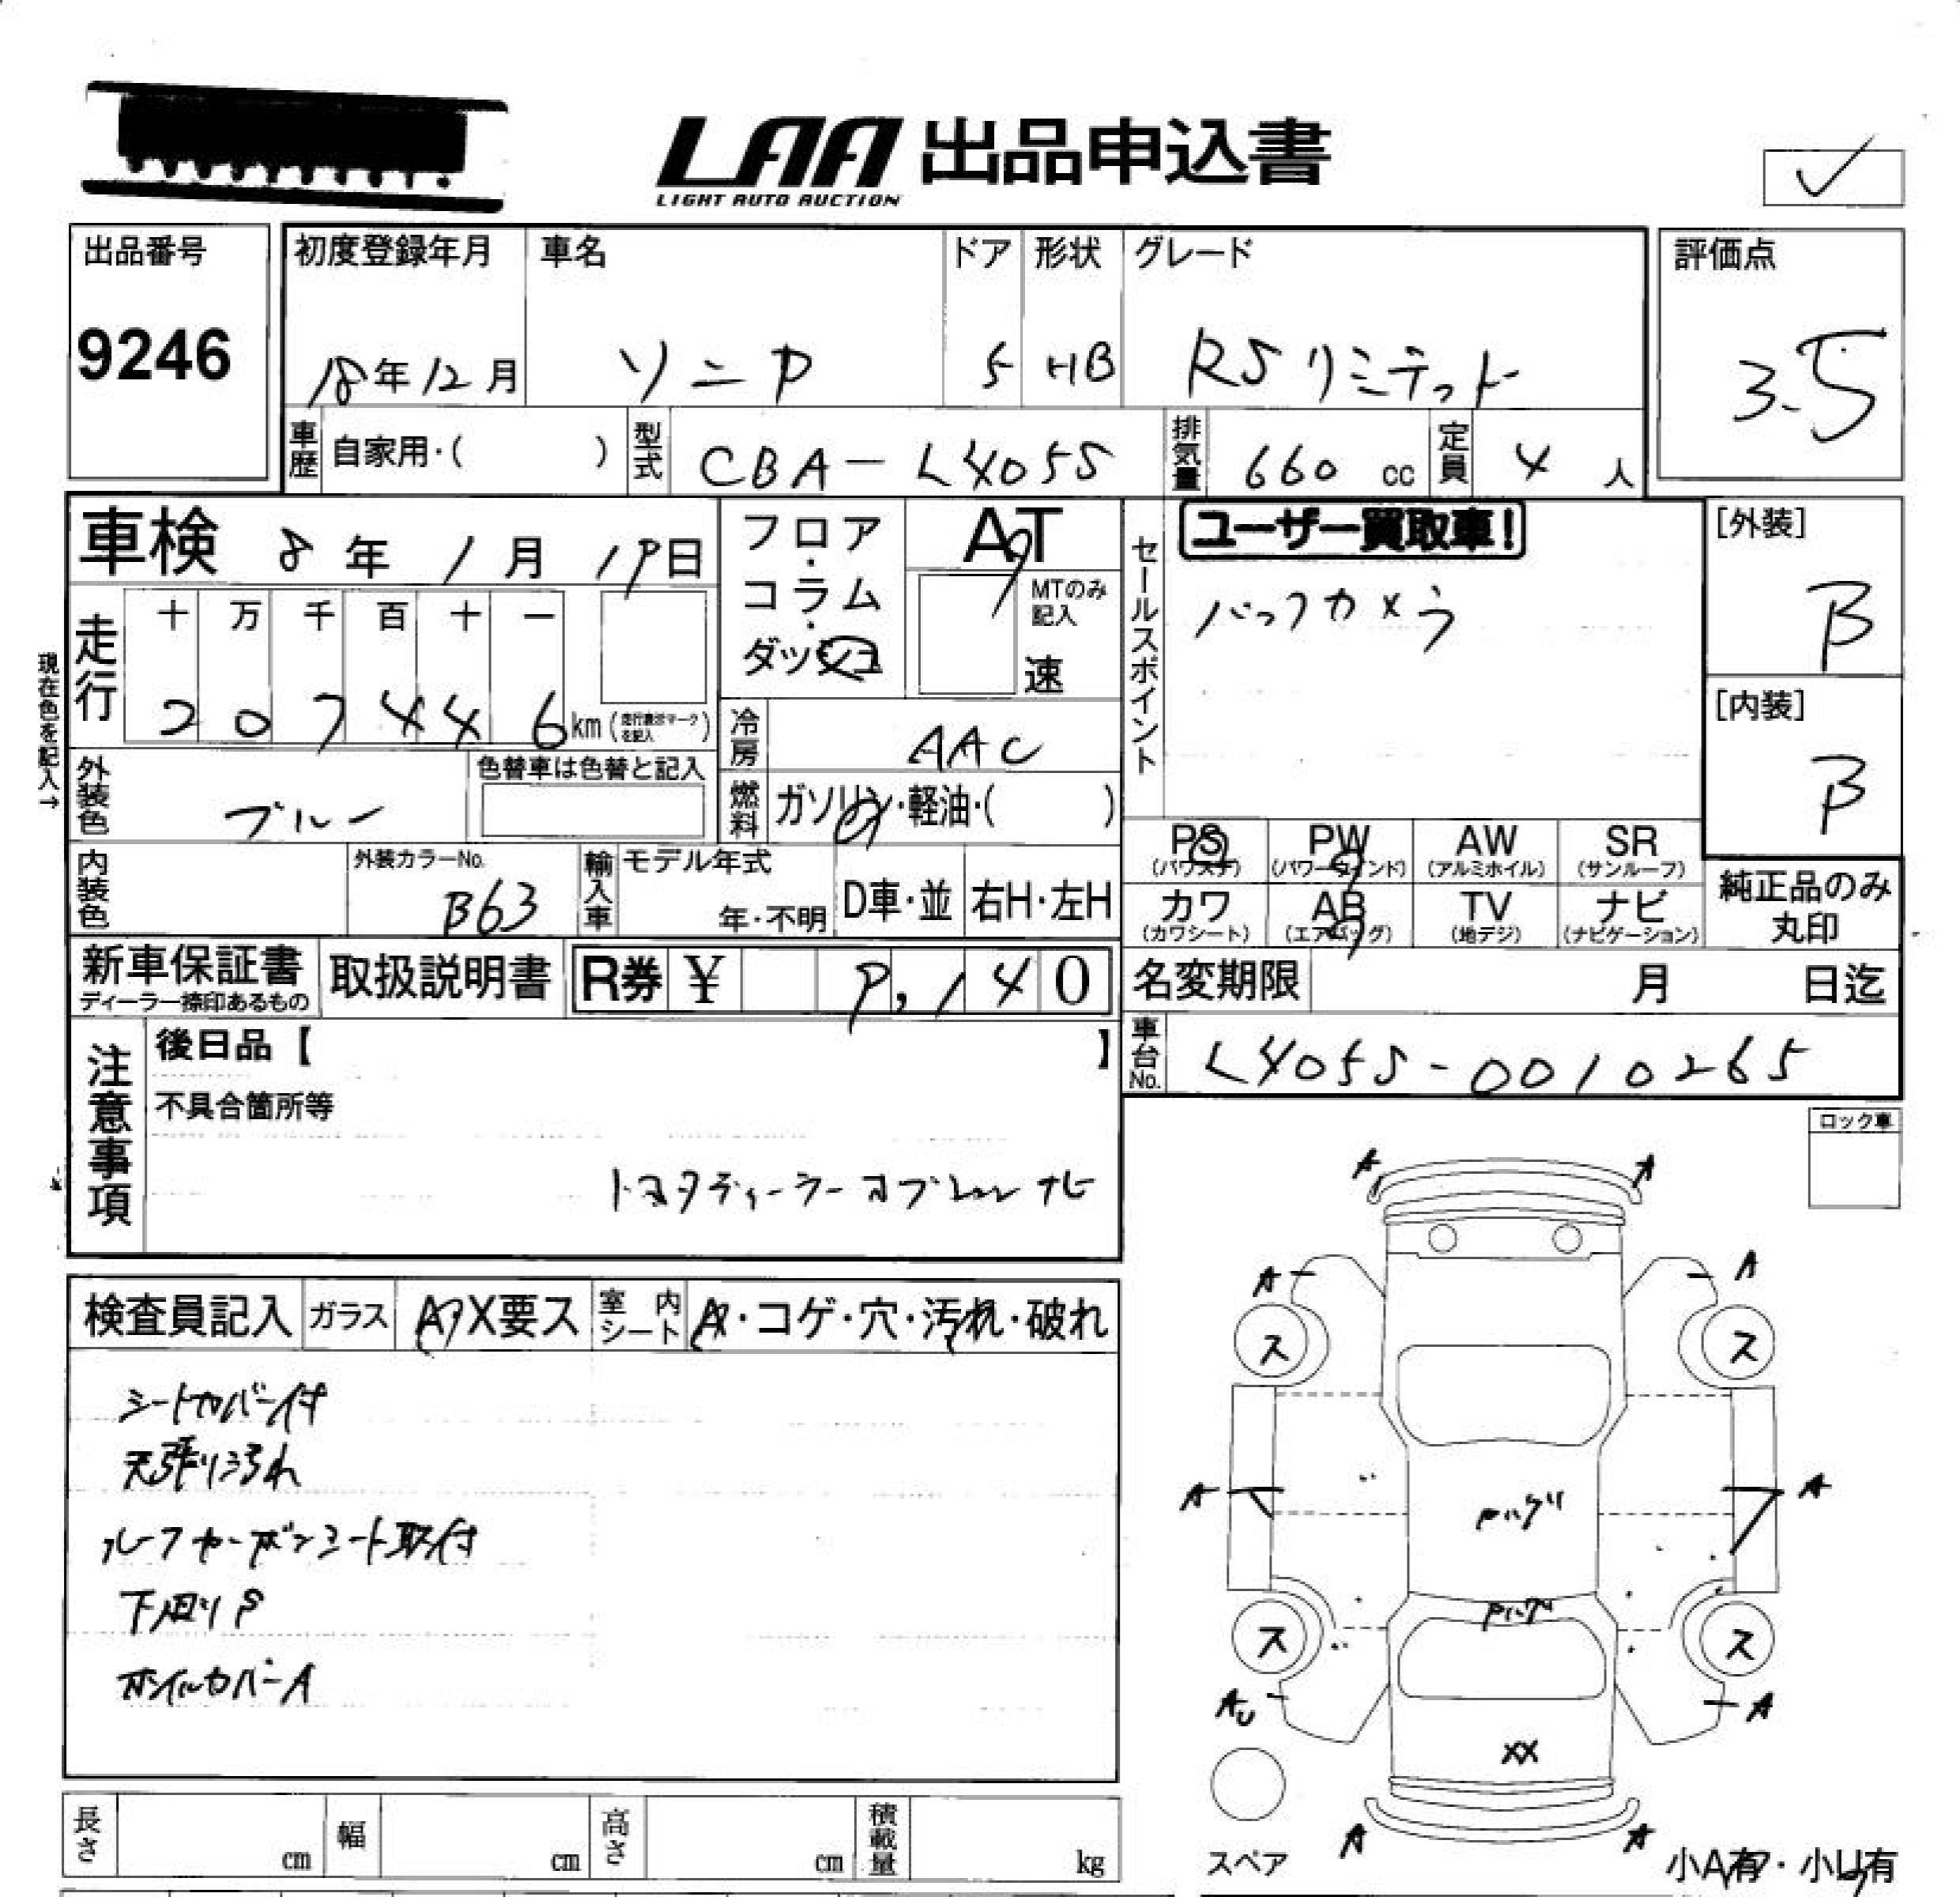 LAA 出品申込書
LIGHT AUTO AUCTION
✓
出品番号
9246
初度登録年月
18年12月
車名
ソニカ
ドア
5
形状
HB
グレード
RSリミテッド
評価点
3.5
車歴 自家用・( )
型式 CBA-L405S
排気量 660 cc
定員 4 人
車検 8年 1月 19日
走行
十 万 千 百 十 一
2 0 7 4 4 6 km (走行表示マークを記入)
現在色を記入→
フロア・コラム・ダッシュ
AT
MTのみ記入
速
冷房 AAC
燃料 ガソリン・軽油・( )
セールスポイント
ユーザー買取車!
バックカメラ
[外装]
B
[内装]
B
外装色 ブルー
色替車は色替と記入
内装色
外装カラーNo.
B63
輸入車
モデル年式
年・不明
D車・並
右H・左H
PS (パワステ)
PW (パワーウインド)
AW (アルミホイル)
SR (サンルーフ)
カワ (カワシート)
AB (エアバッグ)
TV (地デジ)
ナビ (ナビゲーション)
純正品のみ丸印
新車保証書
ディーラー捺印あるもの
取扱説明書
R券 ¥ 9,140
名変期限 月 日迄
車台No. L405S-0010265
注意事項
後日品【 】
不具合箇所等
トヨタディーラーオプションナビ
ロック車
検査員記入
ガラス A・X要ス
室内シート A・コゲ・穴・汚れ・破れ
シートカバー付
天張り汚れ
ルーフカーボンシート取付
下廻りS
ホイルカバーA
A A
A A
ス ス
A A
ハゲ
ハゲ
ス ス
AU A
XX
A A
スペア
小A有・小U有
長さ cm
幅 cm
高さ cm
積載量 kg